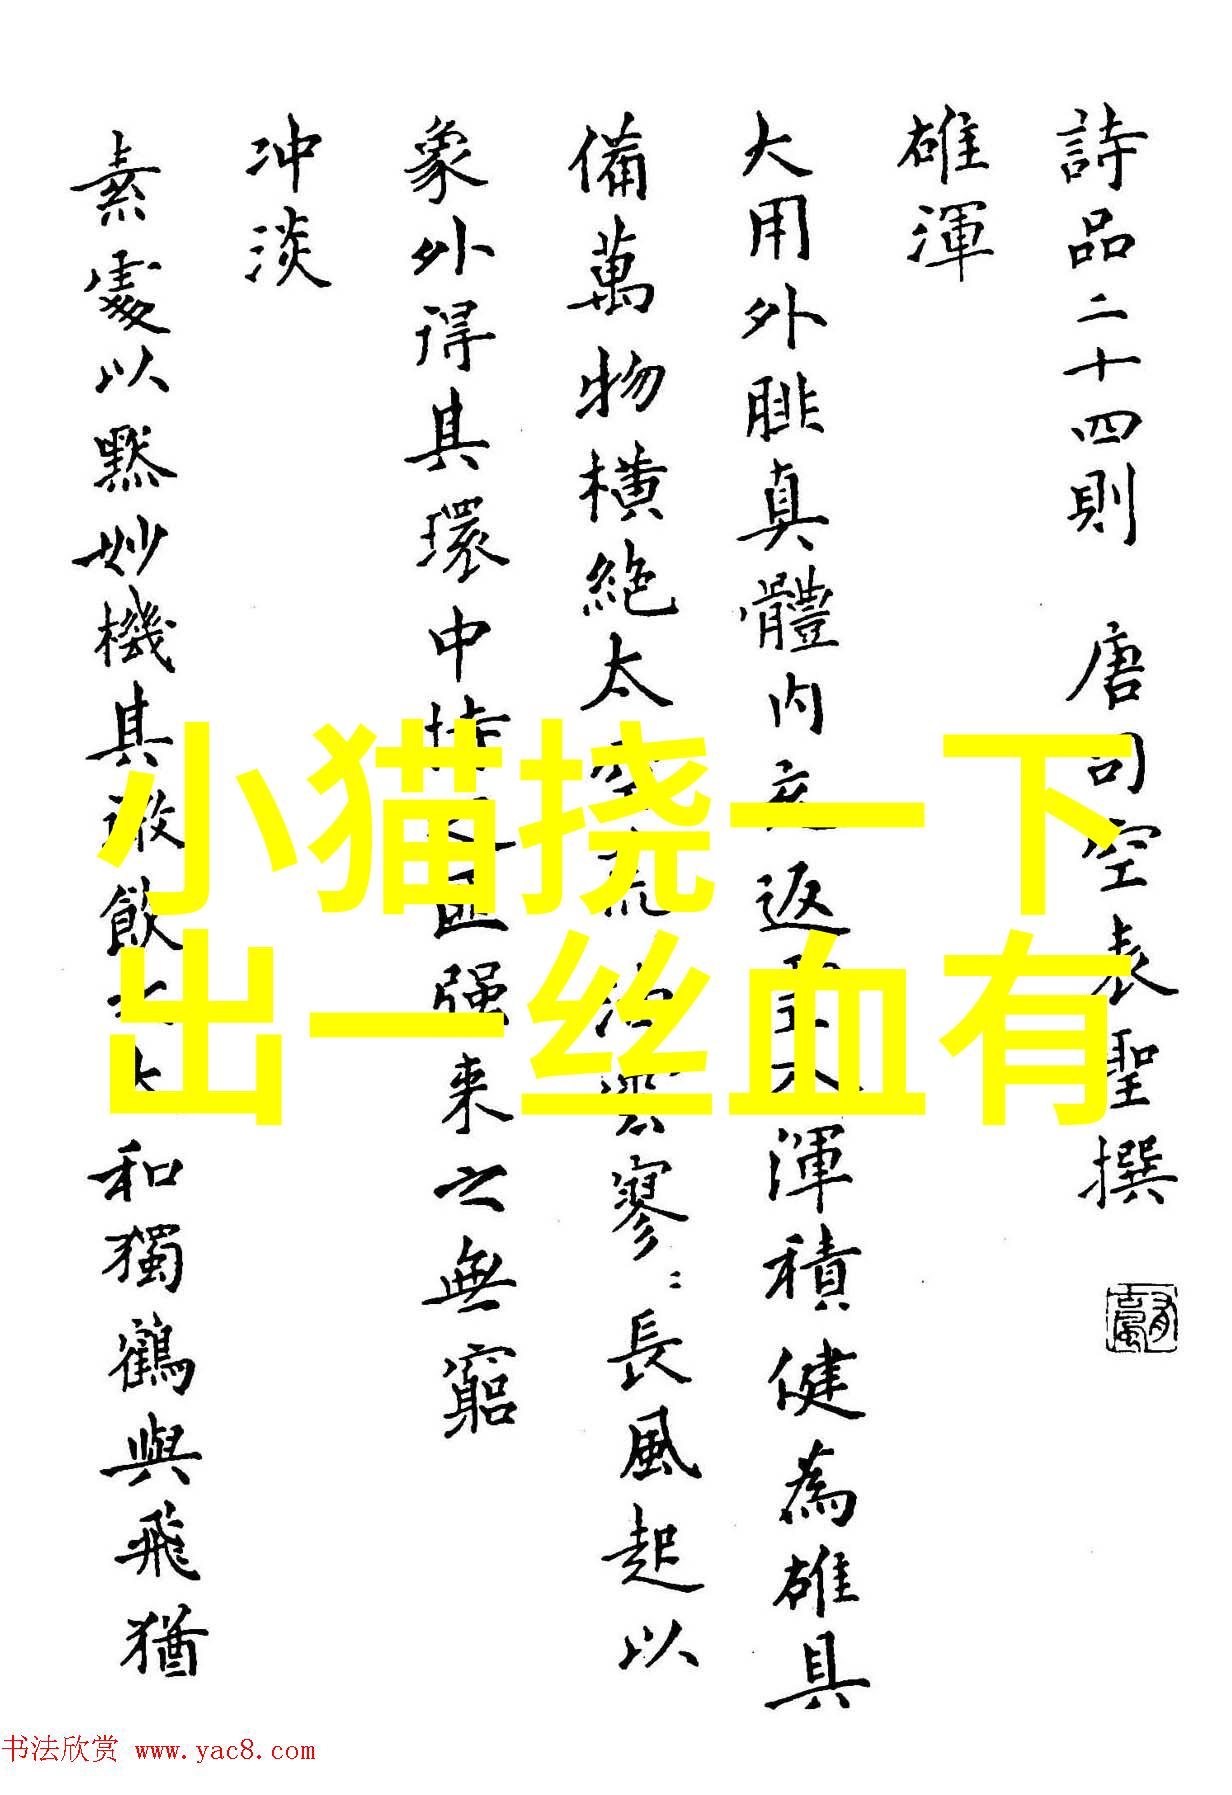 詩品二十四則 唐司空表聖撰
雄渾
大用外腓真體内充返虛入渾積健為雄具
備萬物橫絕太空荒荒油雲寥〻長風起以
象外得其環中持之匪强来之無窮
冲淡
素處以默妙機其微飲之太和獨鶴與飛猶
小猫挠一下
出一丝血有
书法欣赏 www.yac8.com